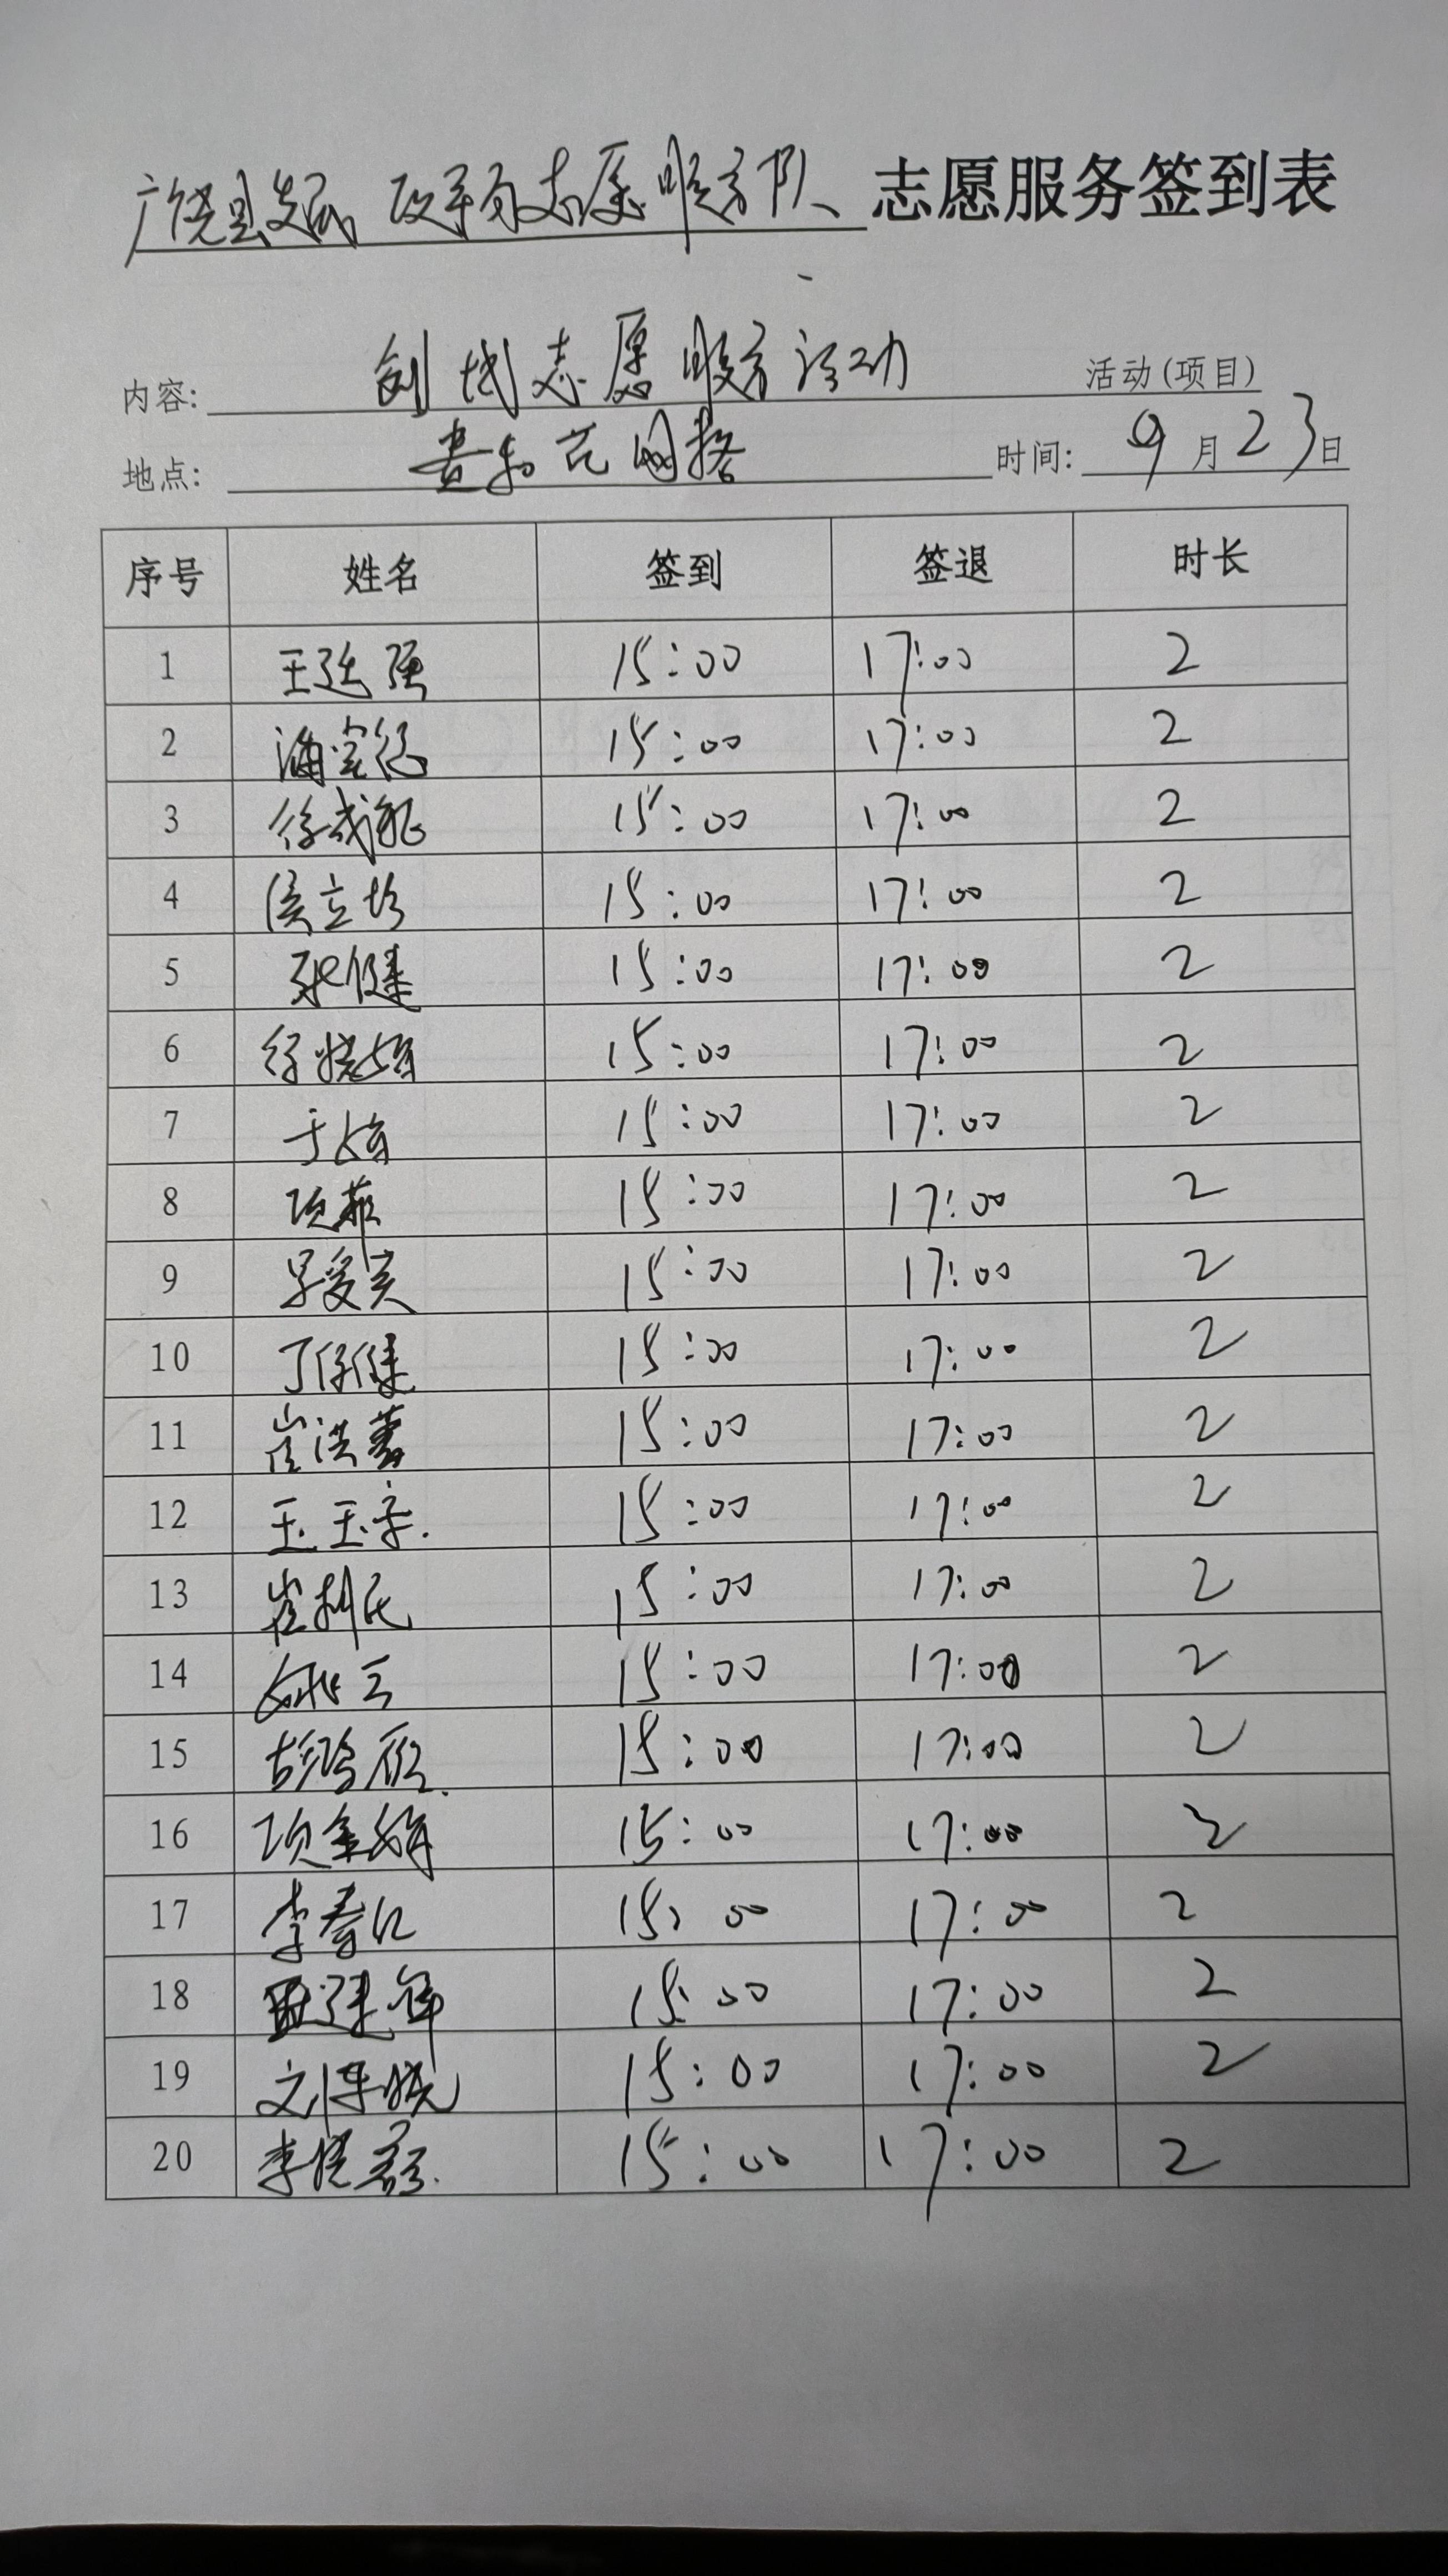 广饶县发展改革局志愿服务队 志愿服务签到表
内容: 创城志愿服务活动 活动(项目)
地点: 贵和苑网格 时间: 9月23日
序号 姓名 签到 签退 时长
1 王廷强 15:00 17:00 2
2 15:00 17:00 2
3 徐成航 15:00 17:00 2
4 侯立均 15:00 17:00 2
5 张健 15:00 17:00 2
6 徐晓娟 15:00 17:00 2
7 于婷 15:00 17:00 2
8 项菲 15:00 17:00 2
9 15:00 17:00 2
10 丁保健 15:00 17:00 2
11 崔洪蕾 15:00 17:00 2
12 王玉宇. 15:00 17:00 2
13 崔利民 15:00 17:00 2
14 15:00 17:00 2
15 15:00 17:00 2
16 项金 15:00 17:00 2
17 李春江 15:00 17:00 2
18 15:00 17:00 2
19 15:00 17:00 2
20 李晓磊. 15:00 17:00 2